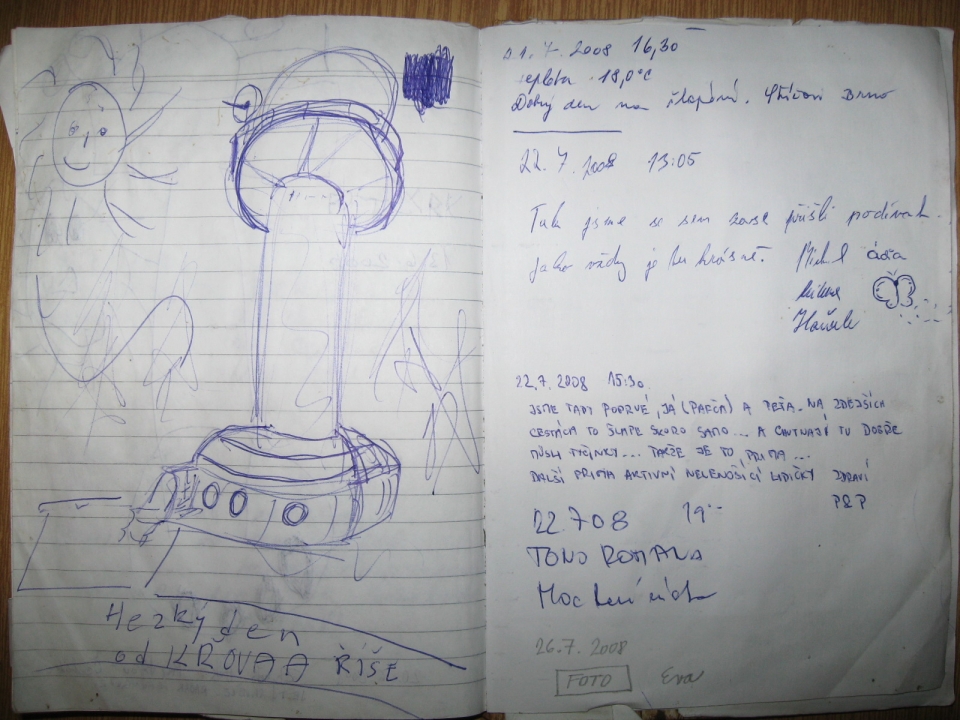 Hezký den
od KŘOVAA ŘÍŠE
21.7. 2008 16,30
teplota 18,0°C
Dobrý den na šlapání. Brno
22.7.2008 13:05
Tak jsme se sem zase přišli podívat.
Jako vždy je tu krásně. Michal
22.7.2008 15:30
JSME TADY POPRVÉ, JÁ (PAFČA) A PEŤA. NA ZDEJŠÍCH
CESTÁCH TO ŠLAPE SKORO SAMO... A CHUTNAJÍ TU DOBŘE
MUSLI TYČINKY... TAKŽE JE TO PRIMA...
DALŠÍ PRIMA AKTIVNÍ NELENOŠÍCÍ LIDIČKY ZDRAVÍ
P&P
22.708 19--
TONO ROMANA
Moc
26.7.2008
FOTO Eva